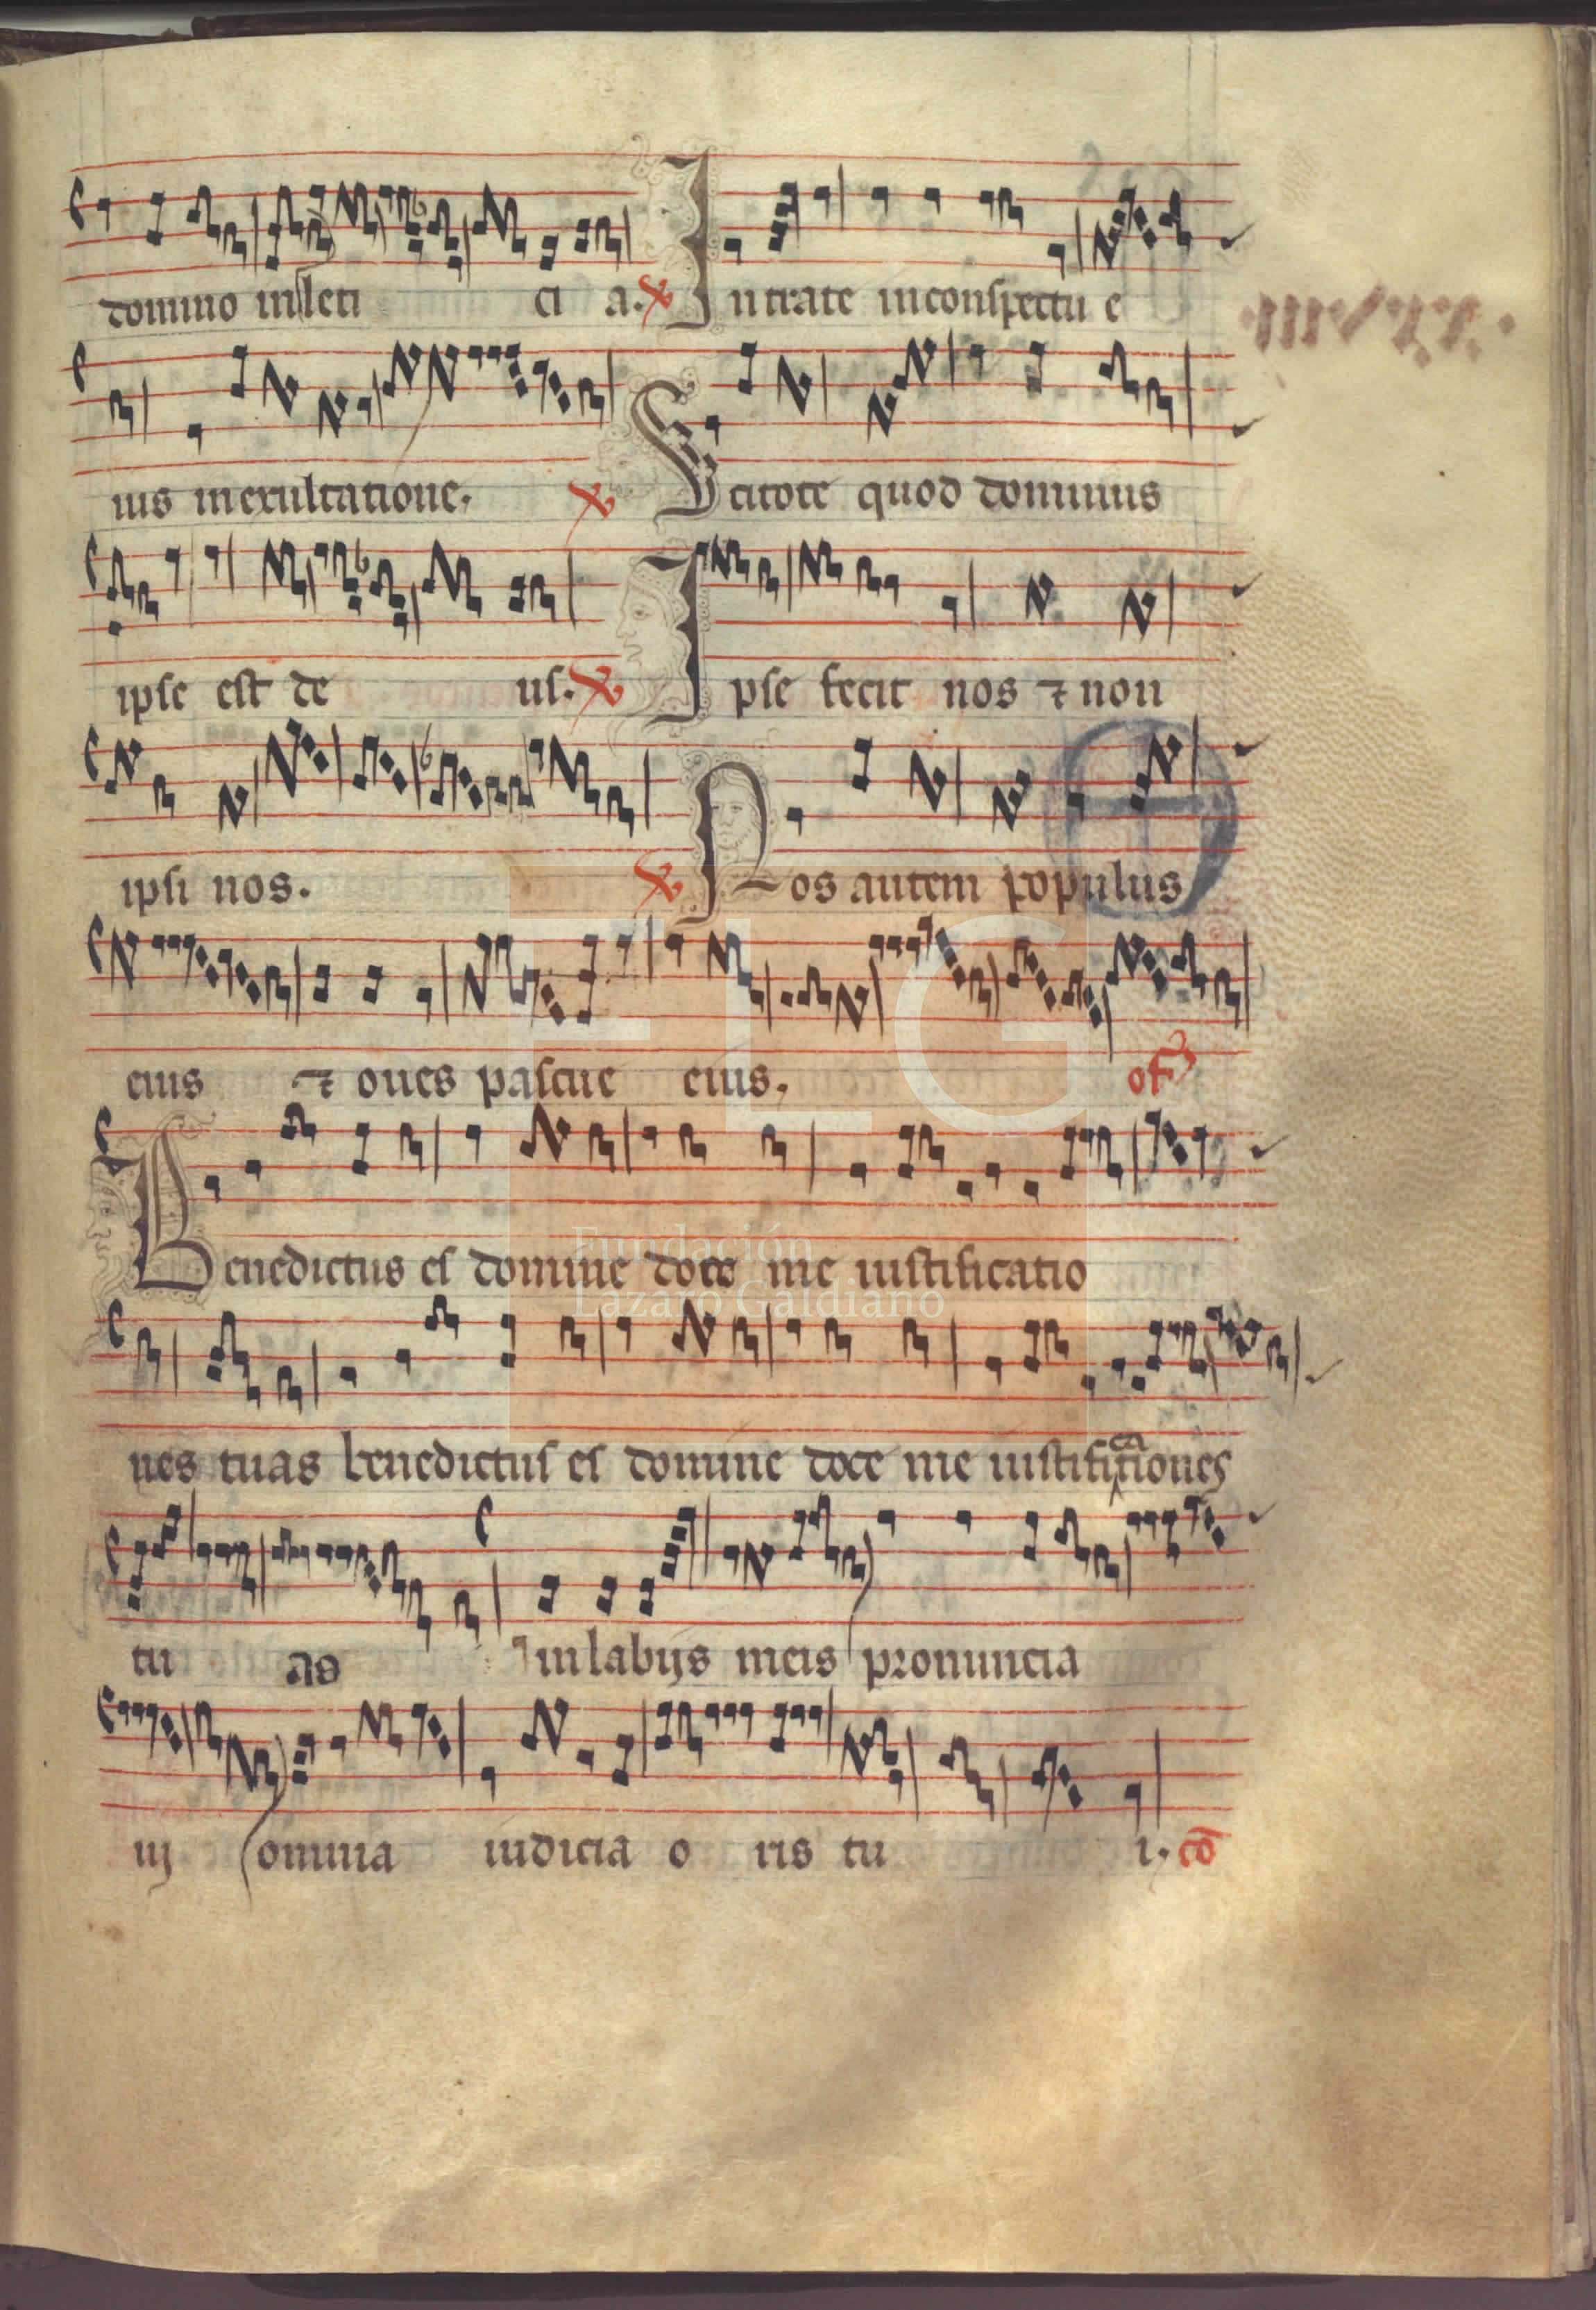 domino in leti ci a. ℣ Intrate in conspectu e
ius in exultatione. ℣ Scitote quod dominus
ipse est de us. ℣ Ipse fecit nos ⁊ non
ipsi nos. ℣ Nos autem populus
eius ⁊ oues pascue eius. of
Benedictus es domine doce me iustificatio
nes tuas benedictus es domine doce me iustificationes
tu as in labijs meis pronuncia
FLG
Fundación
Lázaro Galdiano
uj omnia iudicia o ris tu i. cō